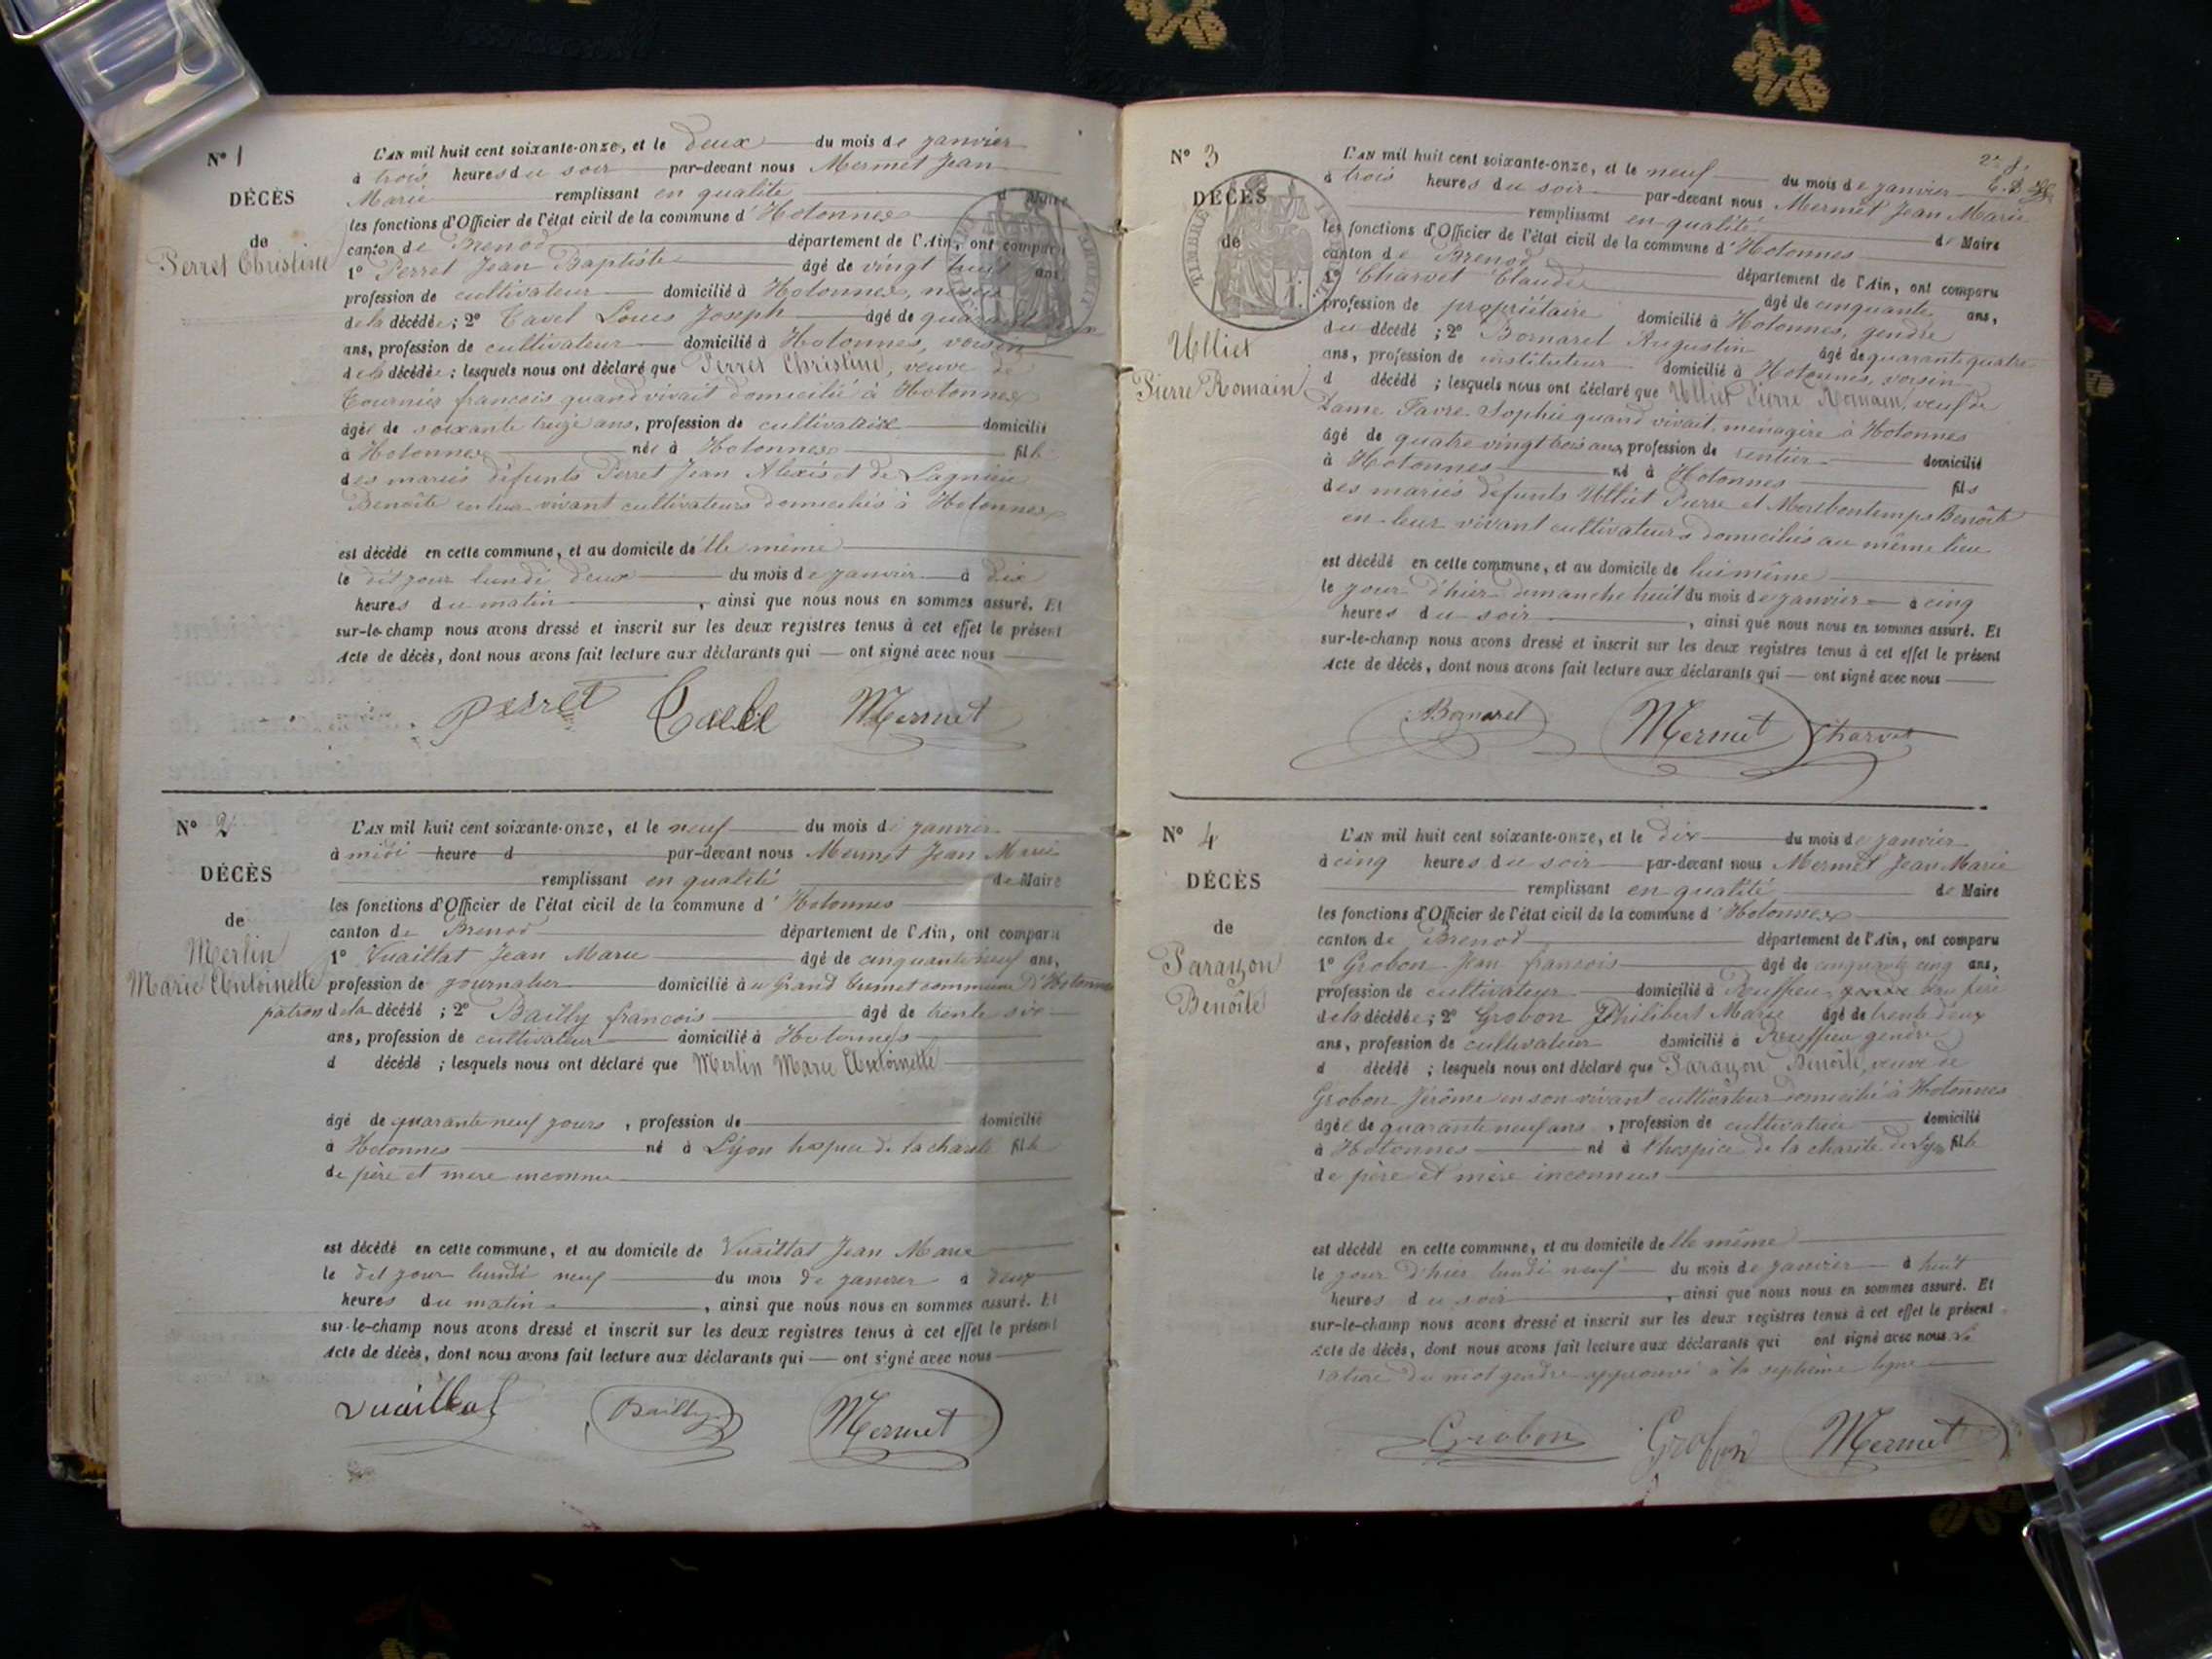 N° 1
DÉCÈS
de
Perret Christine
L'AN mil huit cent soixante-onze, et le deux du mois de janvier
à trois heures du soir par-devant nous Mermet Jean
Marie remplissant en qualité d Maire
les fonctions d'Officier de l'état civil de la commune d'Hotonnes
canton de Brenod département de l'Ain, ont comparu
1° Perret Jean Baptiste âgé de vingt huit ans,
profession de cultivateur domicilié à Hotonnes, neveu
de la décédée ; 2° Tavel Louis Joseph âgé de
ans, profession de cultivateur domicilié à Hotonnes, voisin
de la décédée ; lesquels nous ont déclaré que Perret Christine, veuve de
Tournier françois quand vivait domicilié à Hotonnes
âgée de soixante treize ans, profession de cultivatrice domicilié
à Hotonnes née à Hotonnes fille
des mariés défunts Perret Jean Alexis et de
Benoîte en leur vivant cultivateurs domiciliés à Hotonnes
est décédé en cette commune, et au domicile d'elle même
le dit jour lundi deux du mois de janvier à dix
heures du matin , ainsi que nous nous en sommes assuré. Et
sur-le-champ nous avons dressé et inscrit sur les deux registres tenus à cet effet le présent
Acte de décès, dont nous avons fait lecture aux déclarants qui — ont signé avec nous
perret Mermet
N° 2
DÉCÈS
de
Merlin
Marie Antoinette
L'AN mil huit cent soixante-onze, et le neuf du mois de janvier
à midi heure d par-devant nous Mermet Jean Marie
remplissant en qualité de Maire
les fonctions d'Officier de l'état civil de la commune d'Hotonnes
canton de Brenod département de l'Ain, ont comparu
1° Vuaillat Jean Marie âgé de cinquante neuf ans,
profession de journalier domicilié au Grand commune d'Hotonnes
patron de la décédé ; 2° Bailly françois âgé de trente six
ans, profession de cultivateur domicilié à Hotonnes
d décédé ; lesquels nous ont déclaré que Merlin Marie Antoinette
âgé de quarante neuf jours , profession de domicilié
à Hotonnes né à Lyon hospice de la charité fille
de père et mère inconnu
est décédé en cette commune, et au domicile de Vuaillat Jean Marie
le dit jour lundi neuf du mois de janvier à deux
heures du matin , ainsi que nous nous en sommes assuré. Et
sur-le-champ nous avons dressé et inscrit sur les deux registres tenus à cet effet le présent
Acte de décès, dont nous avons fait lecture aux déclarants qui — ont signé avec nous
Vuaillat Bailly Mermet
2e f.
N° 3
DÉCÈS
de
TIMBRE IMPERIAL
Ulliet
Pierre Romain
L'AN mil huit cent soixante-onze, et le neuf du mois de janvier
à trois heures du soir par-devant nous Mermet Jean Marie
remplissant en qualité de Maire
les fonctions d'Officier de l'état civil de la commune d'Hotonnes
canton de Brenod département de l'Ain, ont comparu
1° Charvet Claude âgé de cinquante ans,
profession de propriétaire domicilié à Hotonnes, gendre
du décédé ; 2° Bornarel Augustin âgé de quarante quatre
ans, profession de instituteur domicilié à Hotonnes, voisin
d décédé ; lesquels nous ont déclaré que Ulliet Pierre Romain, veuf de
Dame Favre Sophie quand vivait, ménagère à Hotonnes
âgé de quatre vingt trois ans, profession de rentier domicilié
à Hotonnes né à Hotonnes fils
des mariés défunts Ulliet Pierre et Benoîte
en leur vivant cultivateurs domiciliés au même lieu
est décédé en cette commune, et au domicile de lui même
le jour d'hier dimanche huit du mois de janvier à cinq
heures du soir , ainsi que nous nous en sommes assuré. Et
sur-le-champ nous avons dressé et inscrit sur les deux registres tenus à cet effet le présent
Acte de décès, dont nous avons fait lecture aux déclarants qui — ont signé avec nous
Bornarel Mermet Charvet
N° 4
DÉCÈS
de
Parayon
Benoîte
L'AN mil huit cent soixante-onze, et le dix du mois de janvier
à cinq heures du soir par-devant nous Mermet Jean Marie
remplissant en qualité de Maire
les fonctions d'Officier de l'état civil de la commune d'Hotonnes
canton de Brenod département de l'Ain, ont comparu
1° Grobon Jean françois âgé de cinquante cinq ans,
profession de cultivateur domicilié à Ruffieu beau frère
de la décédée ; 2° Grobon Philibert Marie âgé de trente deux
ans, profession de cultivateur domicilié à Ruffieu gendre
d décédé ; lesquels nous ont déclaré que Parayon Benoîte, veuve de
Grobon Jérôme en son vivant cultivateur domicilié à Hotonnes
âgée de quarante neuf ans , profession de cultivatrice domicilié
à Hotonnes né à l'hospice de la charité de Lyon fille
de père et mère inconnus
est décédé en cette commune, et au domicile d'elle même
le jour d'hier lundi neuf du mois de janvier à huit
heures du soir , ainsi que nous nous en sommes assuré. Et
sur-le-champ nous avons dressé et inscrit sur les deux registres tenus à cet effet le présent
Acte de décès, dont nous avons fait lecture aux déclarants qui ont signé avec nous La
rature du mot gendre approuvé à la septième ligne
Grobon Grobon Mermet